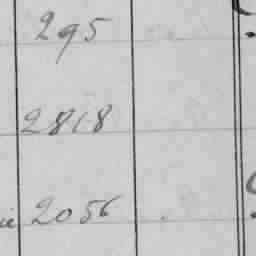 295
2818
2056